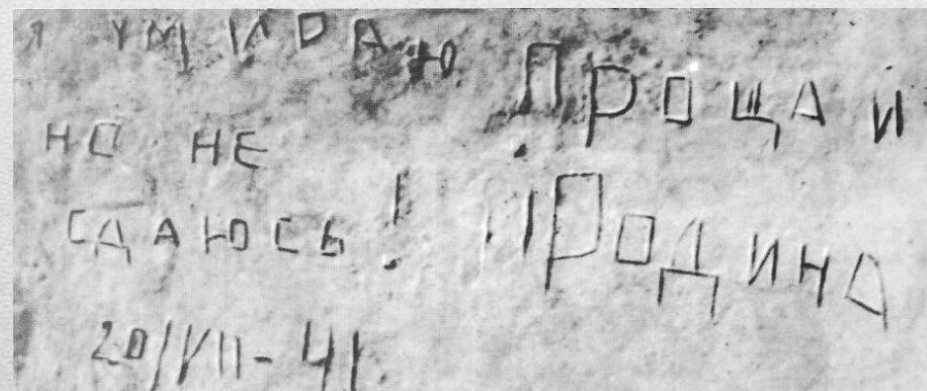 Я УМИРАЮ
НО НЕ
СДАЮСЬ!
ПРОЩАЙ
РОДИНА
20/VII-41